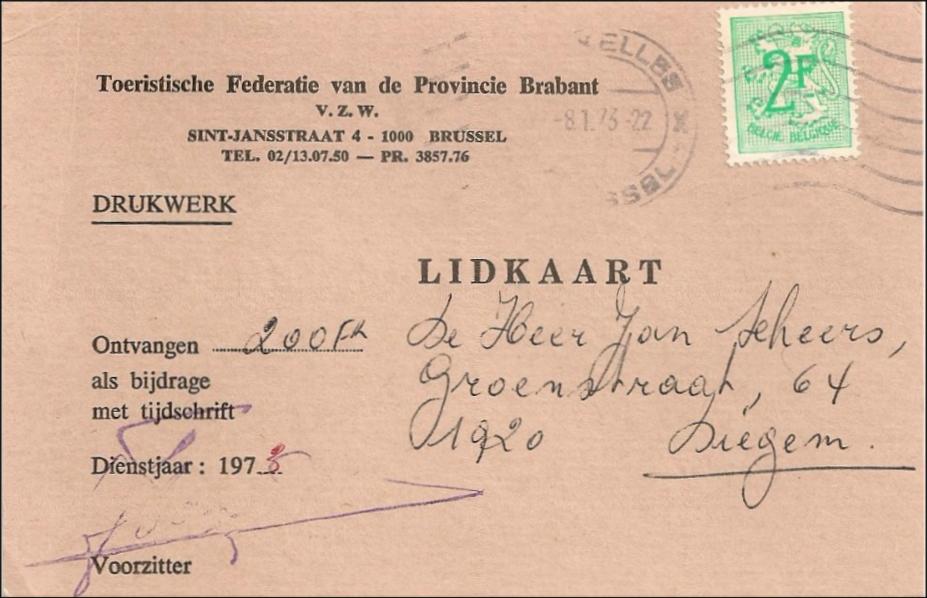 Toeristische Federatie van de Provincie Brabant
V. Z. W.
SINT-JANSSTRAAT 4 - 1000 BRUSSEL
TEL. 02/13.07.50 — PR. 3857.76
-8.1.73-22
2F
BELGIE BELGIQUE
DRUKWERK
LIDKAART
De Heer Jan Scheers,
Groenstraat, 64
1920 Diegem.
Ontvangen 200 FR
als bijdrage
met tijdschrift
Dienstjaar : 197
Voorzitter